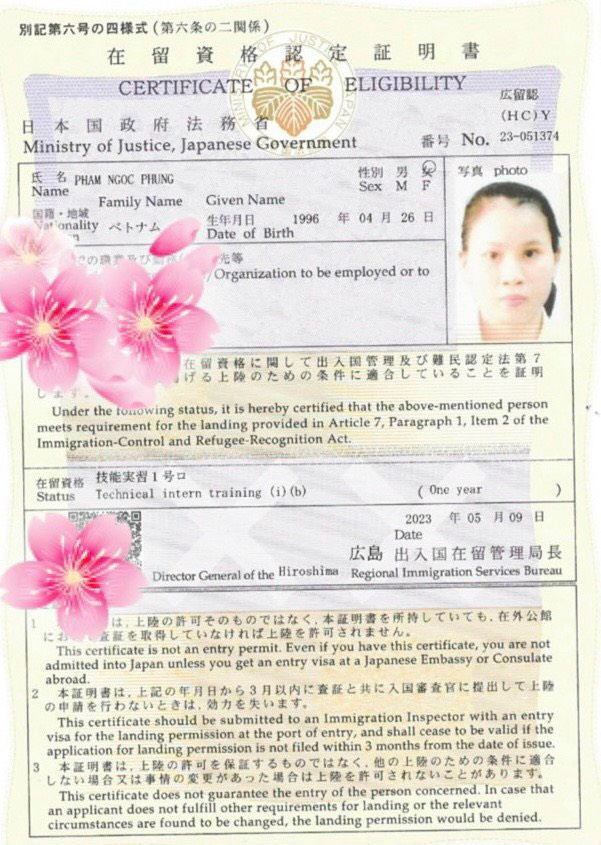 別記第六号の四様式(第六条の二関係)
在留資格認定証明書
CERTIFICATE OF ELIGIBILITY
日本国政府法務省
Ministry of Justice, Japanese Government
広留認
(HC)Y
番号 No. 23-051374
MINISTRY OF JUSTICE, JAPAN
氏名 PHAM NGOC PHUNG
Name
Family Name Given Name
性別 男 女
Sex M F
写真 photo
国籍・地域
ベトナム
生年月日 1996 年 04 月 26 日
Date of Birth
の職業及び
先等
Organization to be employed or to
在留資格に関して出入国管理及び難民認定法第7
げる上陸のための条件に適合していることを証明
します。
Under the following status, it is hereby certified that the above-mentioned person
meets requirement for the landing provided in Article 7, Paragraph 1, Item 2 of the
Immigration-Control and Refugee-Recognition Act.
在留資格 技能実習1号ロ
Status Technical intern training (i)(b) ( One year )
2023 年 05 月 09 日
Date
広島 出入国在留管理局長
Director General of the Hiroshima Regional Immigration Services Bureau
1 は、上陸の許可そのものではなく、本証明書を所持していても、在外公館
にお 査証を取得していなければ上陸を許可されません。
This certificate is not an entry permit. Even if you have this certificate, you are not
admitted into Japan unless you get an entry visa at a Japanese Embassy or Consulate
abroad.
2 本証明書は、上記の年月日から3月以内に査証と共に入国審査官に提出して上陸
の申請を行わないときは、効力を失います。
This certificate should be submitted to an Immigration Inspector with an entry
visa for the landing permission at the port of entry, and shall cease to be valid if the
application for landing permission is not filed within 3 months from the date of issue.
3 本証明書は、上陸の許可を保証するものではなく、他の上陸のための条件に適合
しない場合又は事情の変更があった場合は上陸を許可されないことがあります。
This certificate does not guarantee the entry of the person concerned. In case that
an applicant does not fulfill other requirements for landing or the relevant
circumstances are found to be changed, the landing permission would be denied.